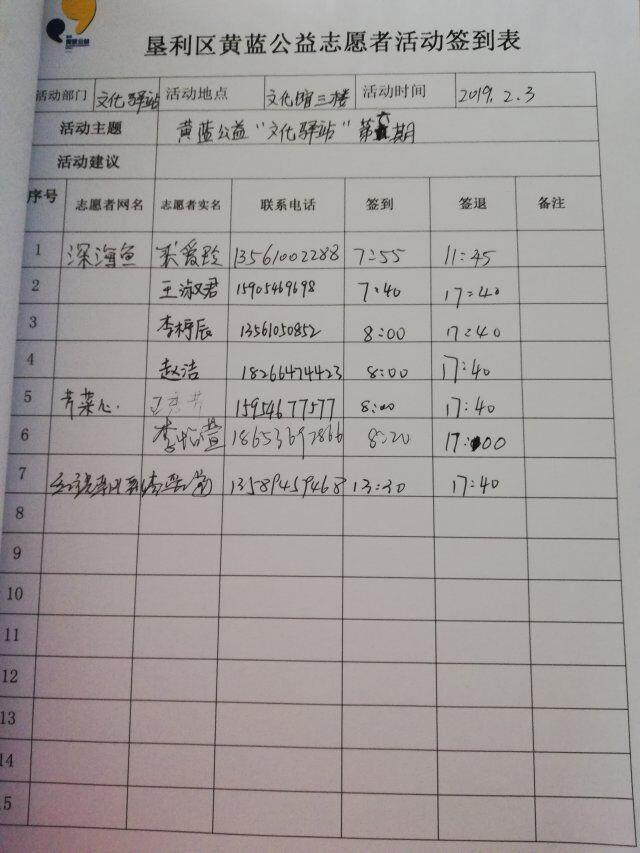 垦利区黄蓝公益志愿者活动签到表
活动部门 文化驿站 活动地点 文化馆三楼 活动时间 2019.2.3
活动主题 黄蓝公益“文化驿站”第六期
活动建议
序号 志愿者网名 志愿者实名 联系电话 签到 签退 备注
1 深海鱼 爱玲 13561002288 7:55 11:45
2 王淑君 15905469698 7:40 17:40
3 李梓辰 13561050852 8:00 17:40
4 赵洁 18266474423 8:00 17:40
5 芹菜心. 15954677577 8:00 17:40
6 李怡萱 18653692866 8:20 17:00
7 13589459468 13:30 17:40
8
9
10
11
12
13
14
15